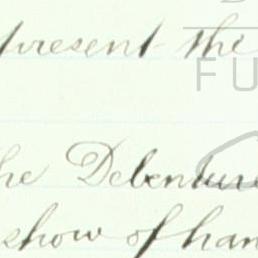 present the
the Debenture
show of han